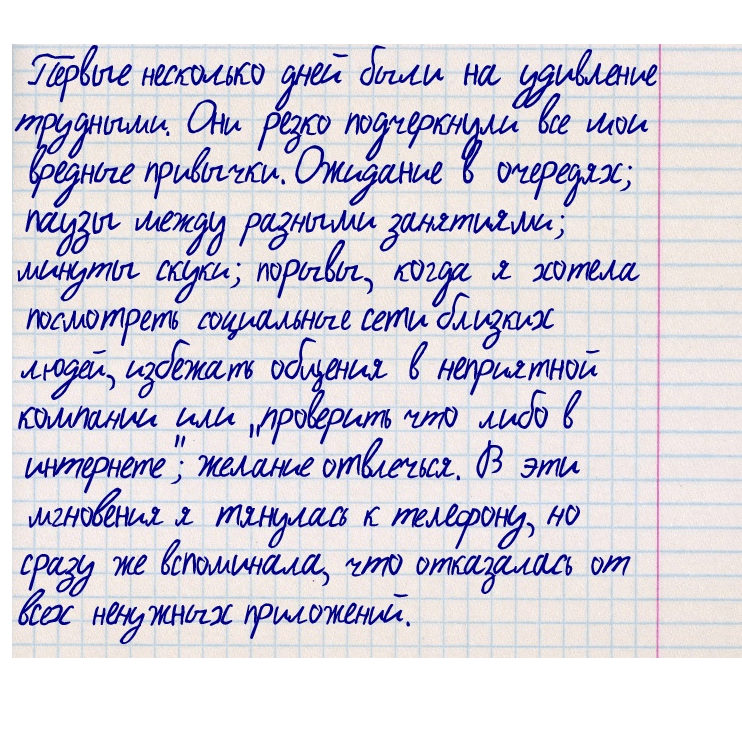 Первые несколько дней были на удивление
трудными. Они резко подчеркнули все мои
вредные привычки. Ожидание в очередях;
паузы между разными занятиями;
минуты скуки; порывы, когда я хотела
посмотреть социальные сети близких
людей, избежать общения в неприятной
компании или „проверить что либо в
интернете"; желание отвлечься. В эти
мгновения я тянулась к телефону, но
сразу же вспоминала, что отказалась от
всех ненужных приложений.